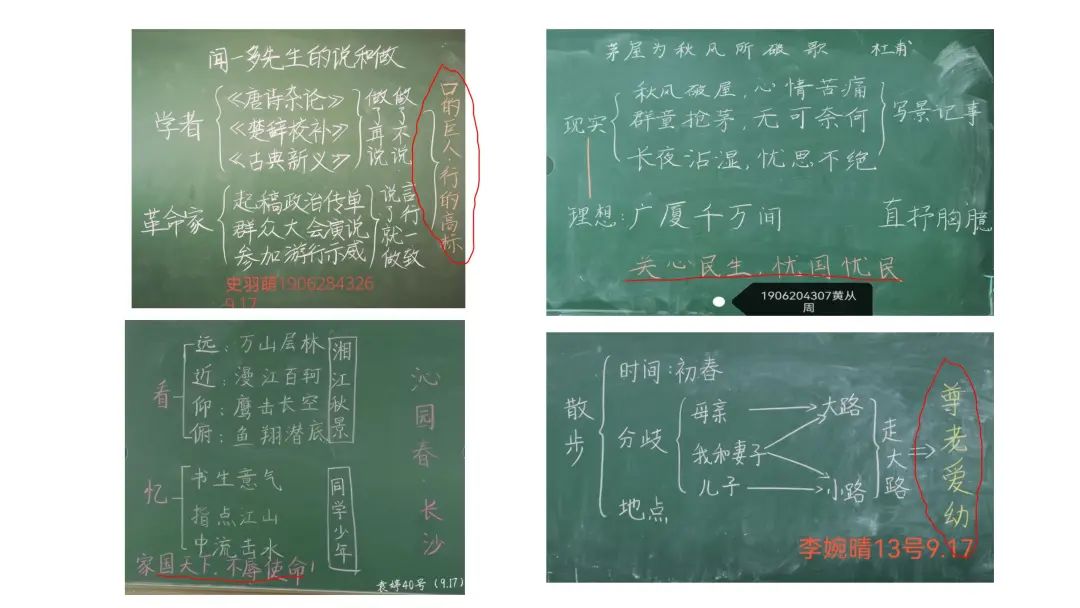 闻一多先生的说和做
学者
《唐诗杂论》
《楚辞校补》
《古典新义》
做了再说
做了不说
革命家
起稿政治传单
群众大会演说
参加游行示威
说了就做
言行一致
口的巨人·行的高标
史羽萌1906284326
9.17
茅屋为秋风所破歌 杜甫
现实
秋风破屋，心情苦痛
群童抢茅，无可奈何
长夜沾湿，忧思不绝
写景记事
理想：广厦千万间 直抒胸臆
关心民生，忧国忧民
1906204307黄从
周
沁园春·长沙
看
远：万山层林
近：漫江百舸
仰：鹰击长空
俯：鱼翔潜底
湘江秋景
忆
书生意气
指点江山
中流击水
同学少年
家国天下，不辱使命！
袁婷40号（9.17）
散步
时间：初春
分歧
母亲
我和妻子
儿子
大路
小路
走大路
地点
尊老爱幼
李婉晴13号9.17